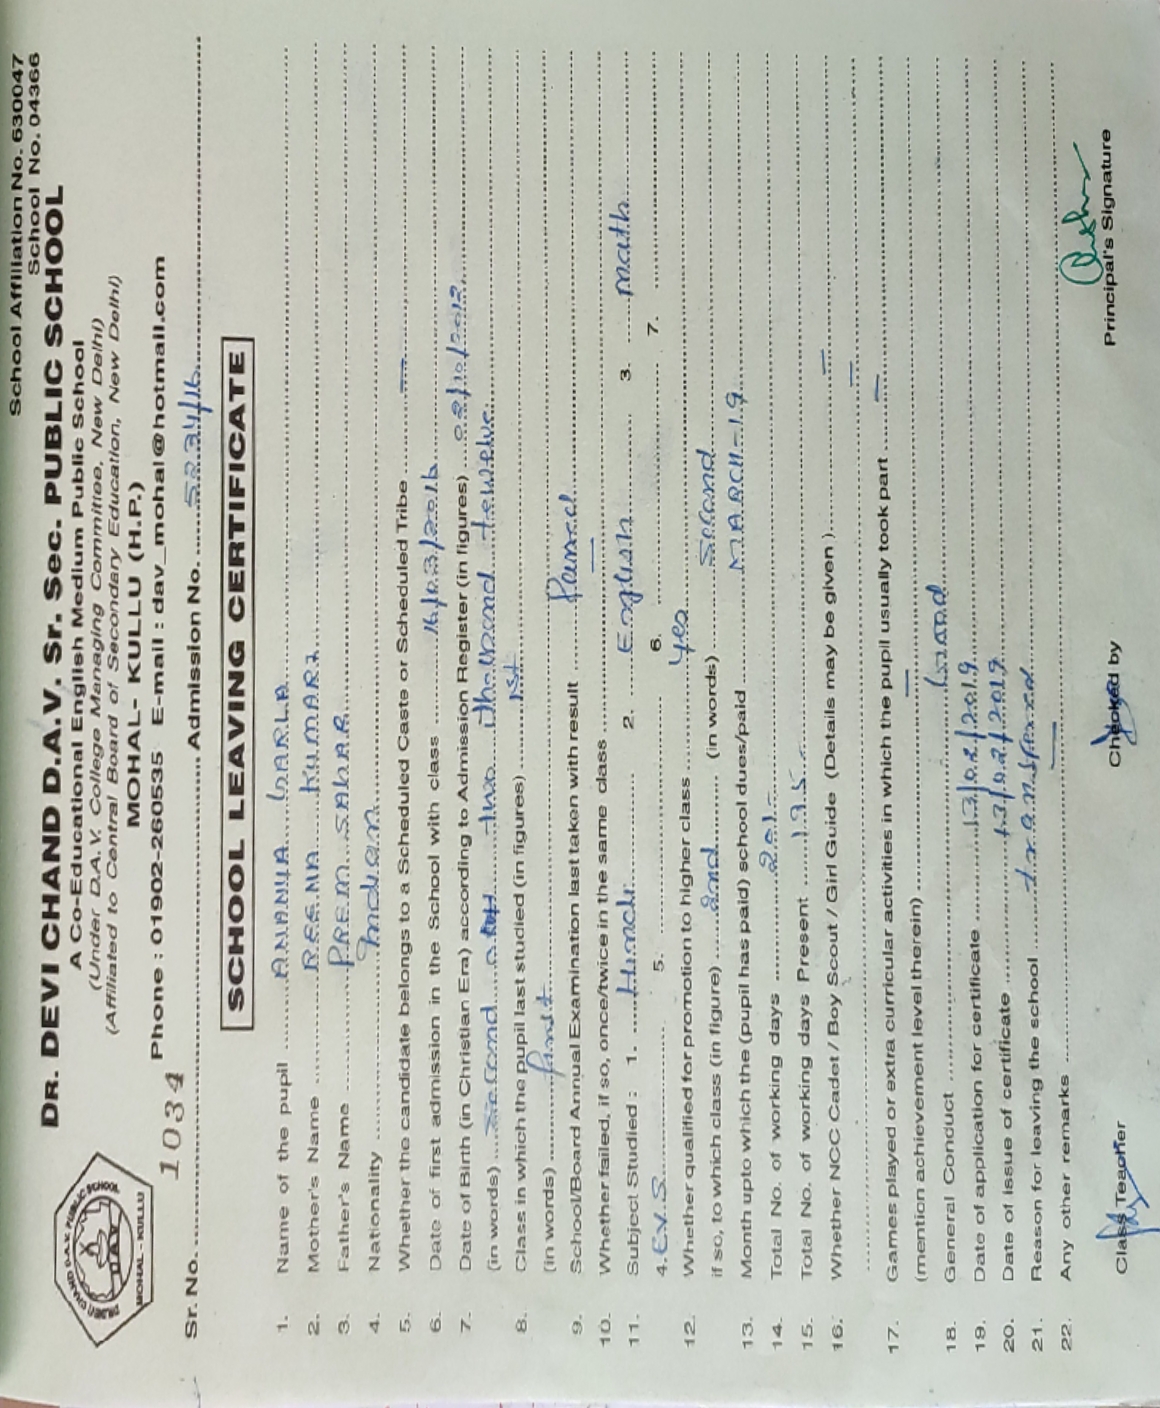 School Affiliation No. 630047
School No. 04366
DR. DEVI CHAND D.A.V. Sr. Sec. PUBLIC SCHOOL
A Co-Educational English Medium Public School
(Under D.A.V. College Managing Committee, New Delhi)
(Affiliated to Central Board of Secondary Education, New Delhi)
MOHAL- KULLU (H.P.)
Phone : 01902-260535 E-mail : dav_mohal@hotmail.com
1034
Sr. No. Admission No. 5234/16
SCHOOL LEAVING CERTIFICATE
1. Name of the pupil ANANYA GARLA
2. Mother's Name REENA KUMARI
3. Father's Name PREM SAGAR
4. Nationality Indian
5. Whether the candidate belongs to a Scheduled Caste or Scheduled Tribe —
6. Date of first admission in the School with class 16/03/2016
7. Date of Birth (in Christian Era) according to Admission Register (in figures) 02/10/2012
(in words) Second two thousand twewelve
8. Class in which the pupil last studied (in figures) 1st
(in words) first
9. School/Board Annual Examination last taken with result Passed
10. Whether failed, if so, once/twice in the same class —
11. Subject Studied : 1. Hindi 2. English 3. Math
4. E.V.S. 5. 6. 7.
12. Whether qualified for promotion to higher class Yes
if so, to which class (in figure) 2nd (in words) Second
13. Month upto which the (pupil has paid) school dues/paid MARCH-19
14. Total No. of working days 201
15. Total No. of working days Present 195
16. Whether NCC Cadet / Boy Scout / Girl Guide (Details may be given ) —
—
17. Games played or extra curricular activities in which the pupil usually took part —
(mention achievement level therein) —
18. General Conduct Good
19. Date of application for certificate 13/02/2019
20. Date of issue of certificate 13/02/2019
21. Reason for leaving the school transfered
22. Any other remarks —
Class Teacher Checked by Principal's Signature